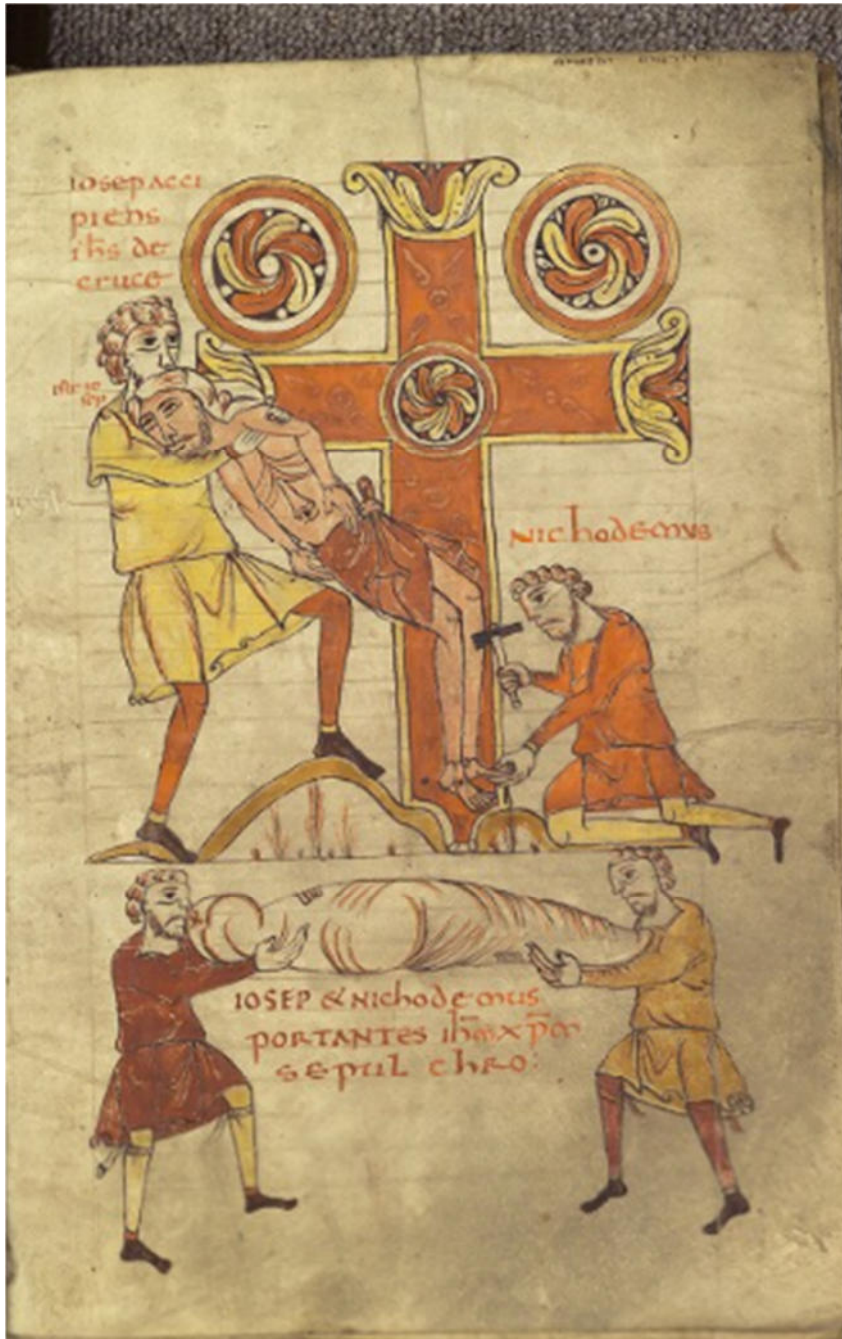 IOSEP ACCI
PIENS
ih̄s de
cruce
NIChODEMUS
IOSEP & NIChODEMUS
PORTANTES ih̄m xp̄m
SEPUL ChRO: